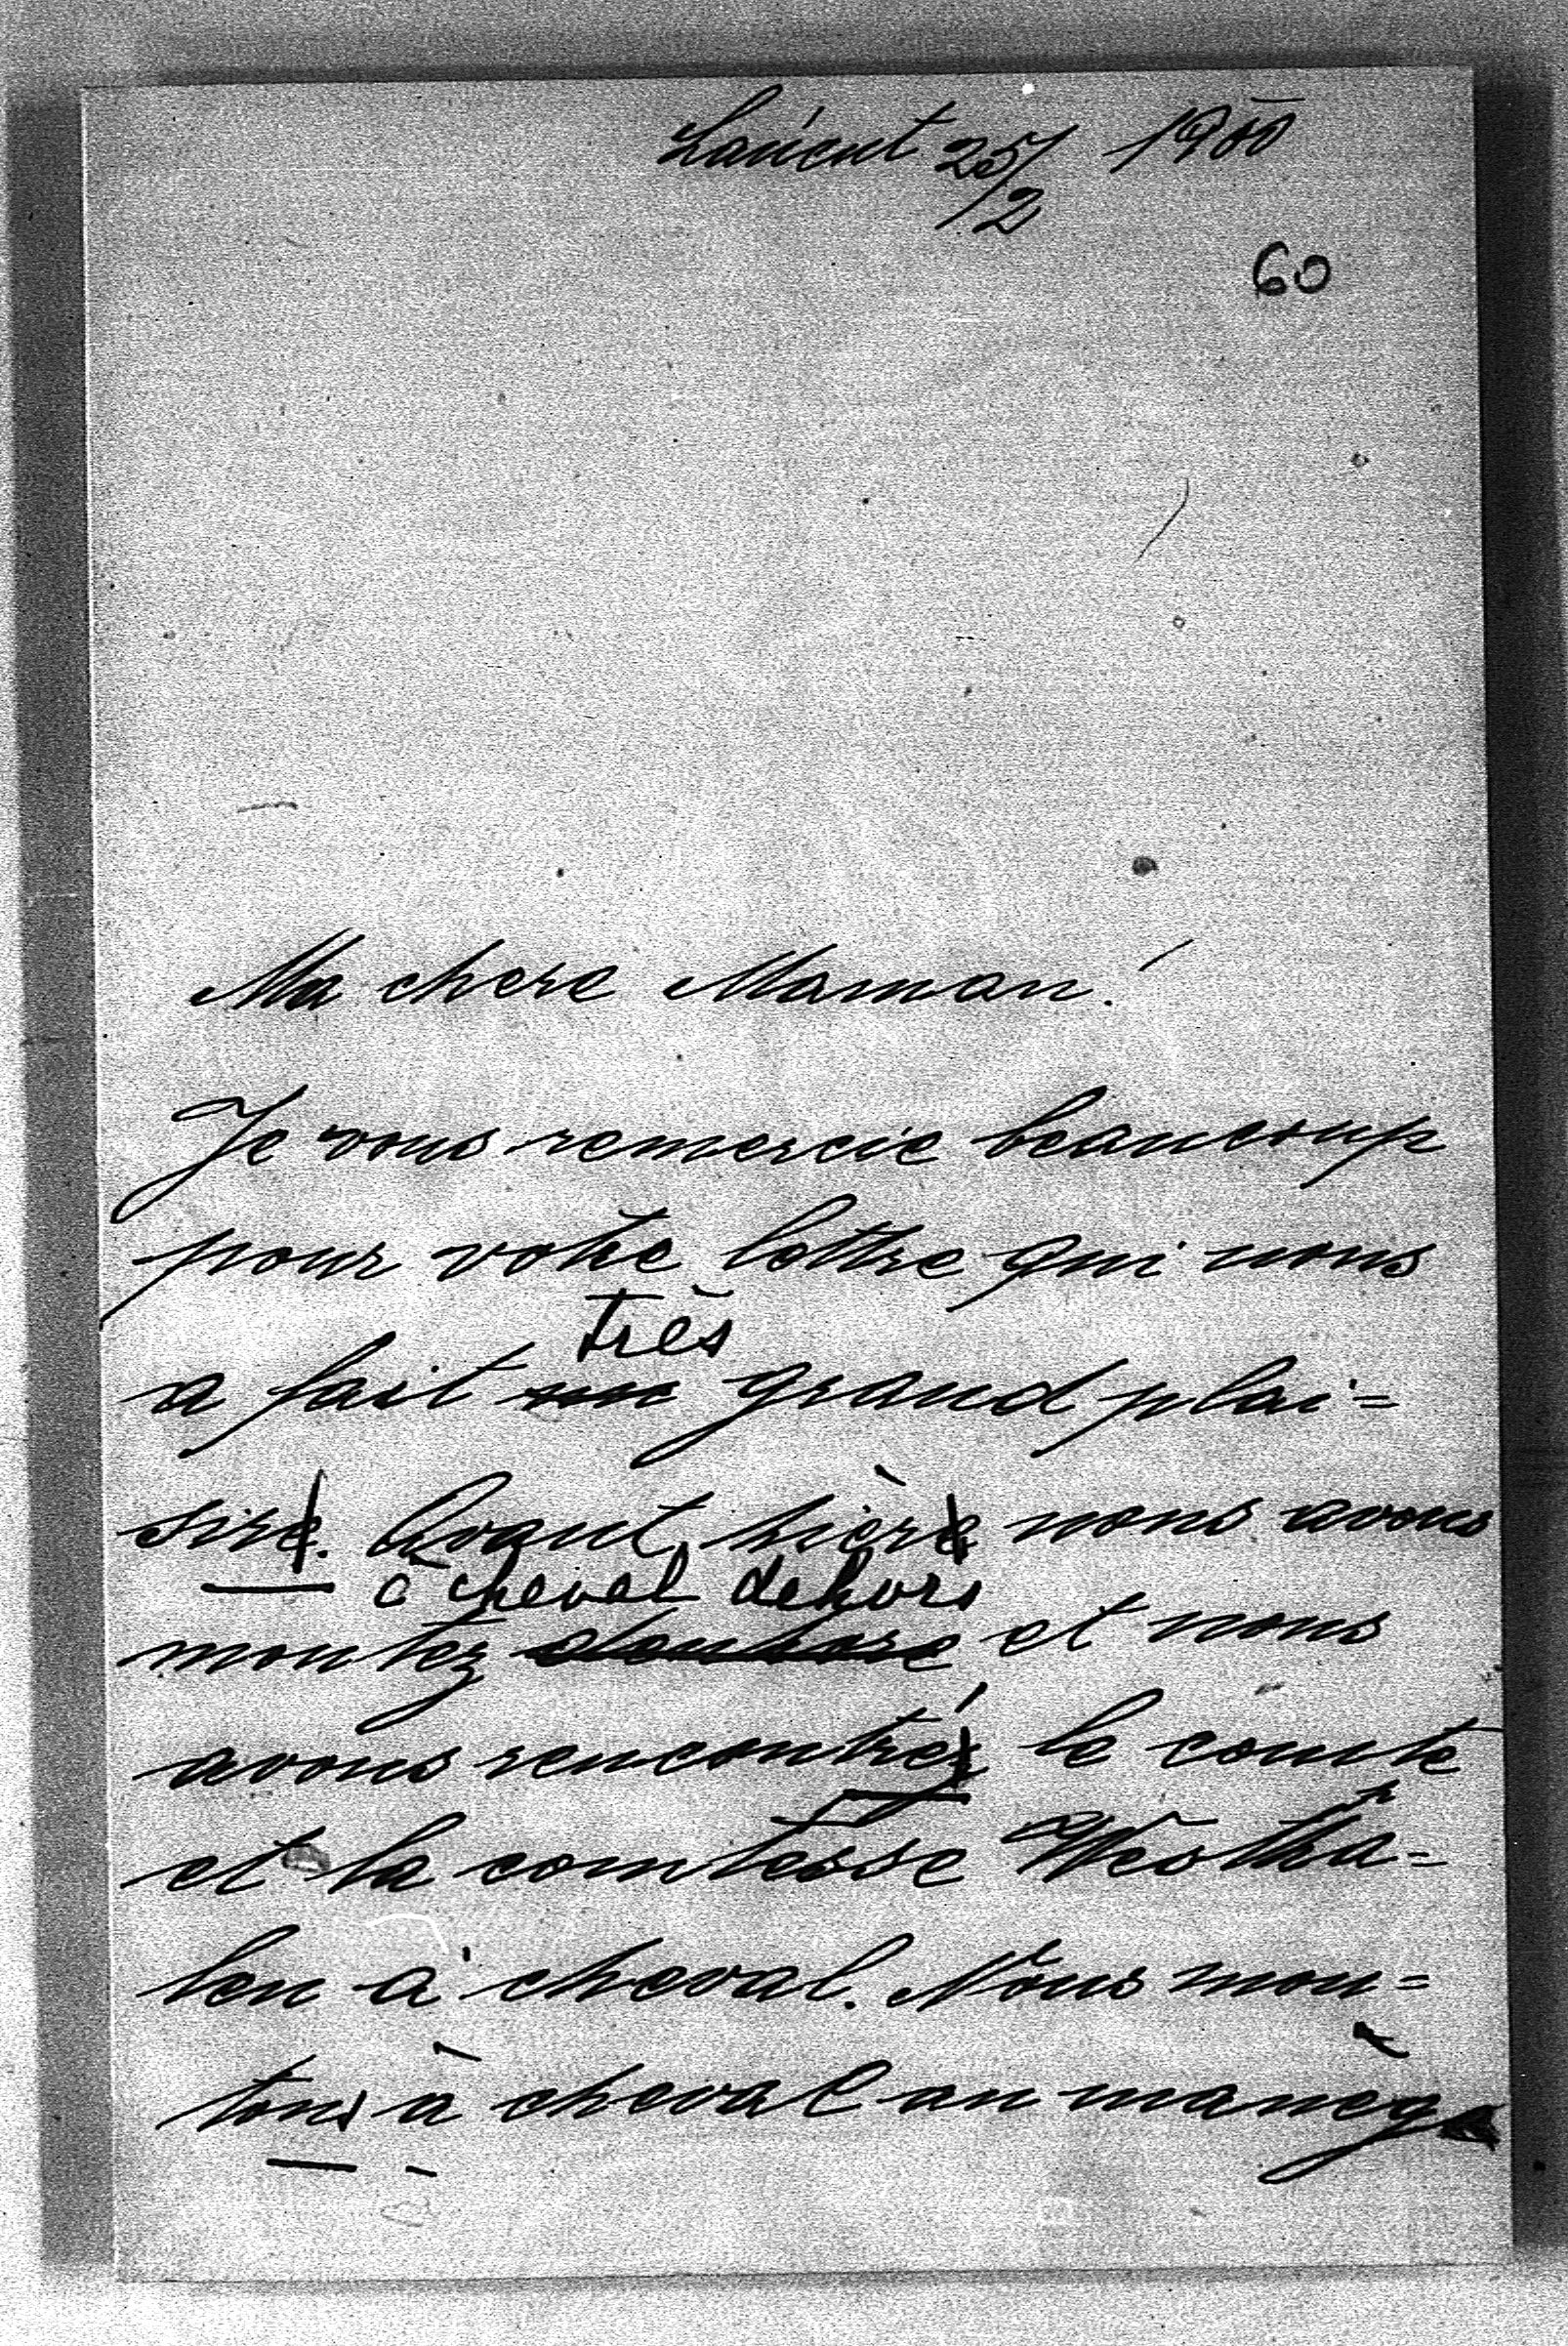 Laućent 25/2 1900
60
Ma chere Maman!
Je vous remercie beaucoup
pour votre lettre qui nous
très
a fait un grand plai=
sire. Avant hière nous avons
à cheval dehors
montez et nous
avons rencontrés le comte
et la comtesse Westha=
len à cheval. Nous mon=
tons à cheval au manèg